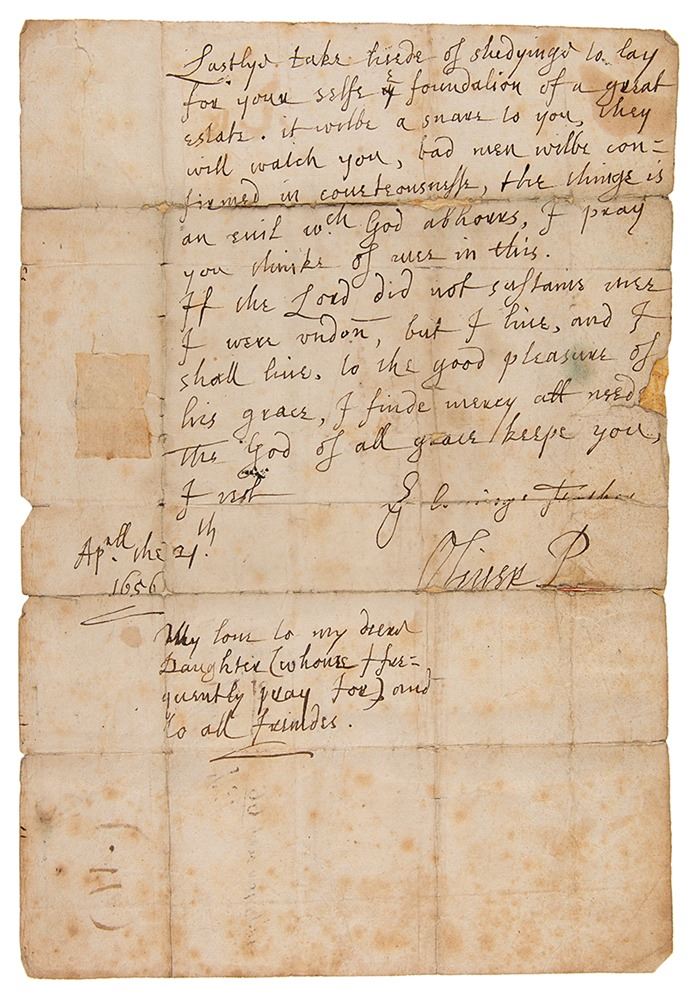 Lastlye take heede of studyinge to lay
for your selfe ye foundation of a great
estate. it wilbe a snare to you, they
will watch you, bad men wilbe con=
firmed in covetousnesse, the thinge is
an evil wch God abhours, I pray
you thinke of mee in this.
If the Lord did not sustaine mee
I were undon, but I live, and I
shall live, to the good pleasure of
his grace, I finde mercy att need
The God of all grace keepe you,
I rest
Your lovinge Father
Oliver P
Aprill the 21th
1656
My love to my deere
Daughter (whome I fre=
quently pray for) and
to all freindes.